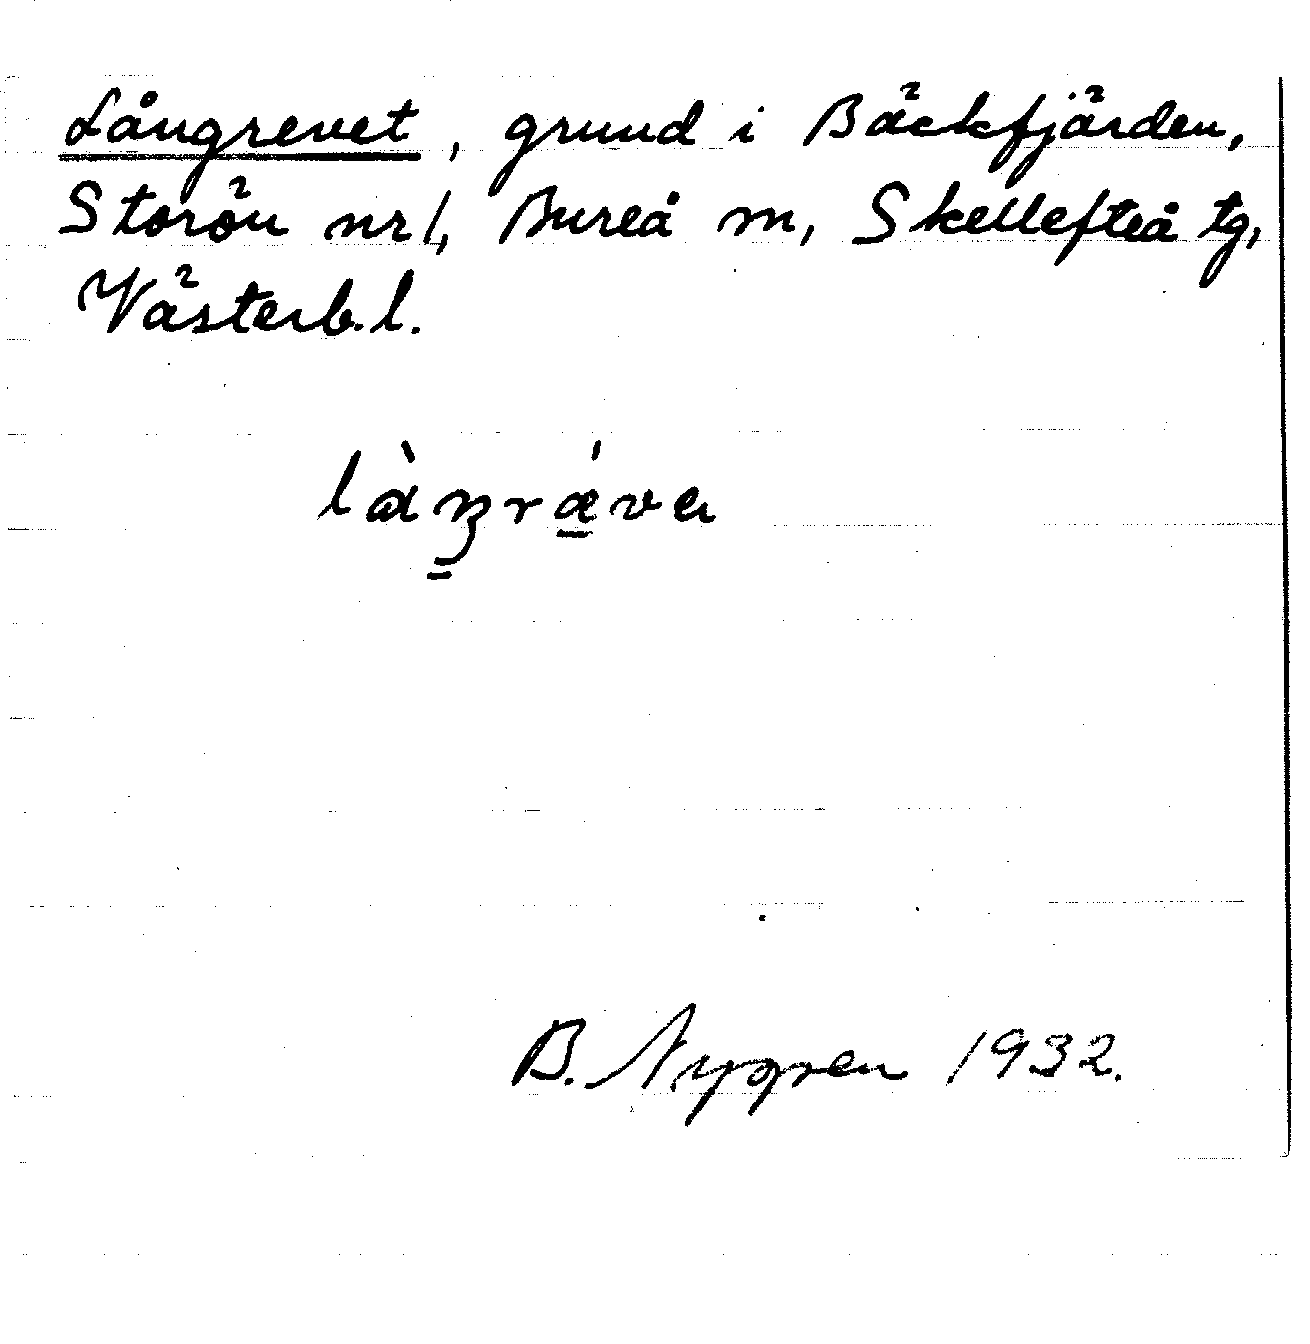 Långrevet, grund i Bäckfjärden,
Storön nr 1, Bureå m, Skellefteå tg,
Västerb.l.
B. Nygren 1932.